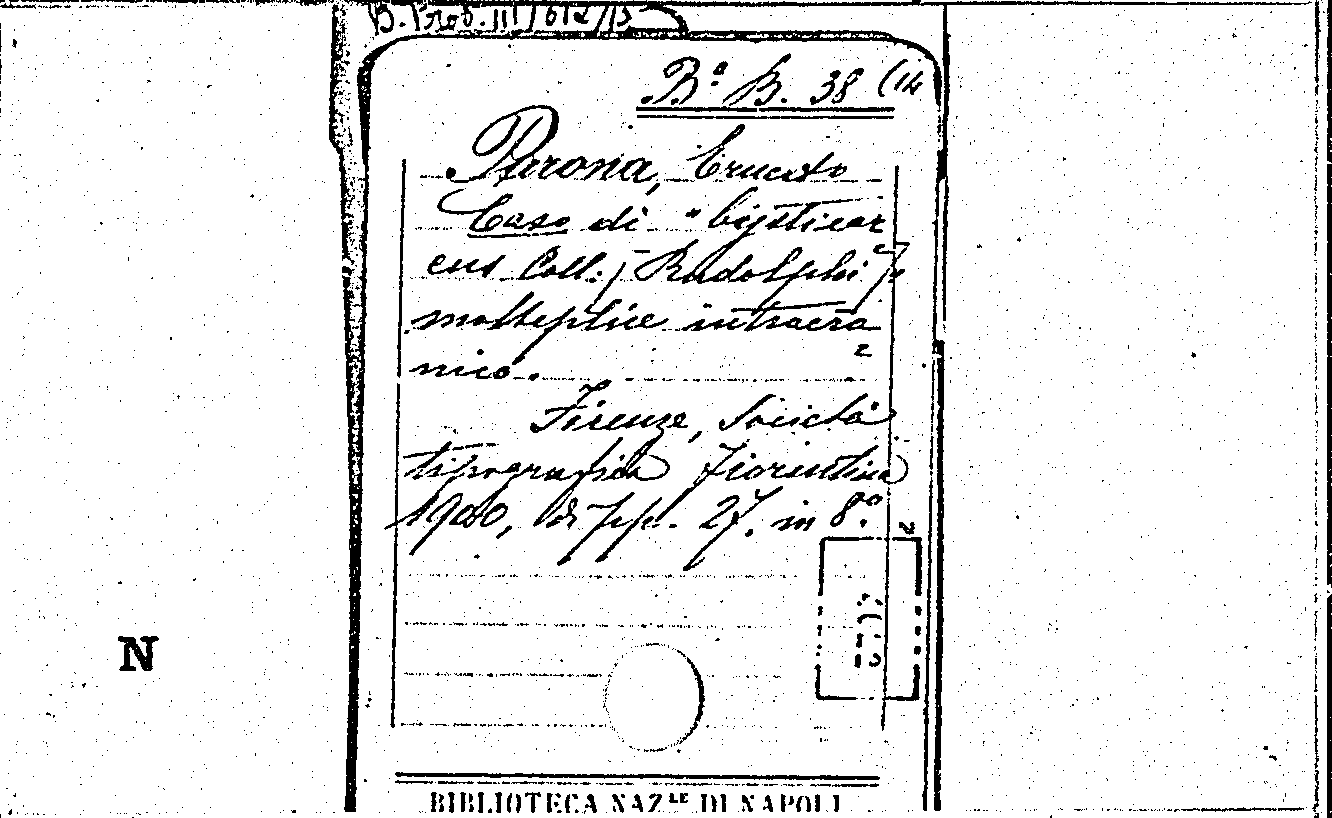 B. Prov. III
Bª B. 38 (14
Parona, Ernesto
Caso di "cysticer
cus Cell: (Rudolphi)"
molteplice intracra
nico.
Firenze, Società
tipografica Fiorentina
1900, di pp. 27. in 8.º
N
BIBLIOTECA NAZLE DI NAPOLI